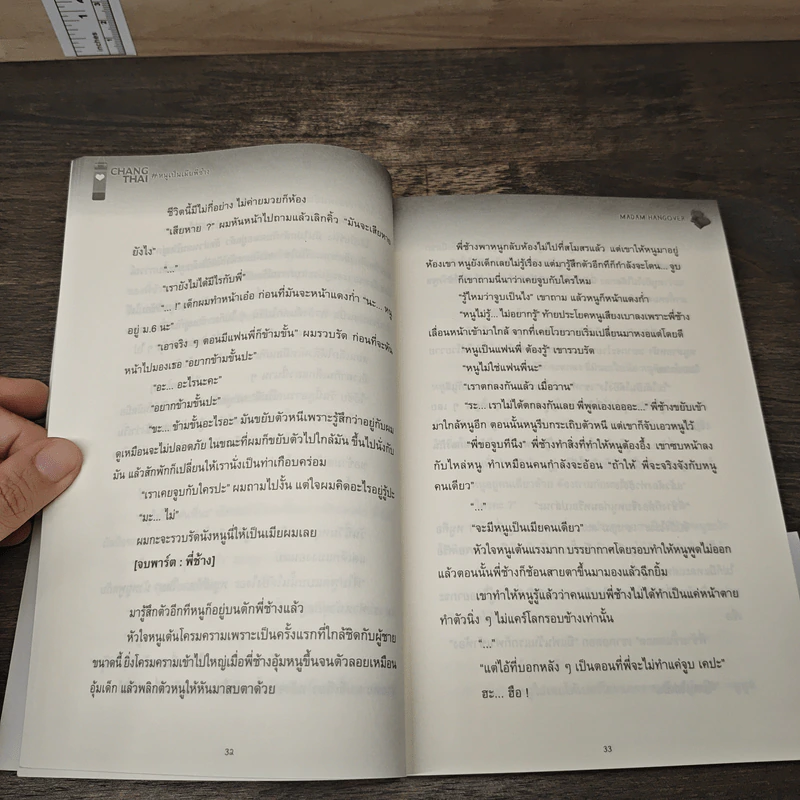 CHANG
THAI #หนูเป็นเมียพี่ช้าง
ชีวิตนี้มีไม่กี่อย่าง ไม่ค่ายมวยก็ห้อง
“เสียหาย ?” ผมหันหน้าไปถามแล้วเลิกคิ้ว “มันจะเสียหาย
ยังไง”
“...”
“เรายังไม่ได้มีไรกับพี่”
“... !” เด็กผมทำหน้าเอ๋อ ก่อนที่มันจะหน้าแดงก่ำ “นะ... หนู
อยู่ ม.6 นะ”
“เอาจริง ๆ ตอนมีแฟนพี่ก็ข้ามขั้น” ผมรวบรัด ก่อนที่จะหัน
หน้าไปมองเธอ “อยากข้ามขั้นปะ”
“อะ... อะไรนะคะ”
“อยากข้ามขั้นปะ”
“ขะ... ข้ามขั้นอะไรอะ” มันขยับตัวหนีเพราะรู้สึกว่าอยู่กับผม
ดูเหมือนจะไม่ปลอดภัย ในขณะที่ผมก็ขยับตัวไปใกล้มัน ขึ้นไปนั่งกับ
มัน แล้วสักพักก็เปลี่ยนให้เรานั่งเป็นท่าเกือบคร่อม
“เราเคยจูบกับใครปะ” ผมถามไปงั้น แต่ใจผมคิดอะไรอยู่รู้ปะ
“มะ... ไม่”
ผมกะจะรวบรัดนังหนูนี่ให้เป็นเมียผมเลย
[จบพาร์ต : พี่ช้าง]
มารู้สึกตัวอีกทีหนูก็อยู่บนตักพี่ช้างแล้ว
หัวใจหนูเต้นโครมครามเพราะเป็นครั้งแรกที่ใกล้ชิดกับผู้ชาย
ขนาดนี้ ยิ่งโครมครามเข้าไปใหญ่เมื่อพี่ช้างอุ้มหนูขึ้นจนตัวลอยเหมือน
อุ้มเด็ก แล้วพลิกตัวหนูให้หันมาสบตาด้วย
32
MADAM HANGOVER
พี่ช้างพาหนูกลับห้องไม่ไปที่สโมสรแล้ว แต่เขาให้หนูมาอยู่
ห้องเขา หนูยังเด็กเลยไม่รู้เรื่อง แต่มารู้สึกตัวอีกทีก็กำลังจะโดน... จูบ
ก็เขาถามนี่นาว่าเคยจูบกับใครไหม
“รู้ไหมว่าจูบเป็นไง” เขาถาม แล้วหนูก็หน้าแดงก่ำ
“หนูไม่รู้... ไม่อยากรู้” ท้ายประโยคหนูเสียงเบาลงเพราะพี่ช้าง
เลื่อนหน้าเข้ามาใกล้ จากที่เคยโวยวายเริ่มเปลี่ยนมาหงอแต่โดยดี
“หนูเป็นแฟนพี่ ต้องรู้” เขารวบรัด
“หนูไม่ใช่แฟนพี่นะ”
“เราตกลงกันแล้ว เมื่อวาน”
“ระ... เราไม่ได้ตกลงกันเลย พี่พูดเองเอออะ...” พี่ช้างขยับเข้า
มาใกล้หนูอีก ตอนนั้นหนูรีบกระเถิบตัวหนี แต่เขาก็จับเอวหนูไว้
“พี่ขอจูบทีนึง” พี่ช้างทำสิ่งที่ทำให้หนูต้องอึ้ง เขาซบหน้าลง
กับไหล่หนู ทำเหมือนคนกำลังจะอ้อน “ถ้าให้ พี่จะจริงจังกับหนู
คนเดียว”
“...”
“จะมีหนูเป็นเมียคนเดียว”
หัวใจหนูเต้นแรงมาก บรรยากาศโดยรอบทำให้หนูพูดไม่ออก
แล้วตอนนั้นพี่ช้างก็ช้อนสายตาขึ้นมามองแล้วฉีกยิ้ม
เขาทำให้หนูรู้แล้วว่าคนแบบพี่ช้างไม่ได้ทำเป็นแค่หน้าตาย
ทำตัวนิ่ง ๆ ไม่แคร์โลกรอบข้างเท่านั้น
“...”
“แต่ไอ้ที่บอกหลัง ๆ เป็นตอนที่พี่จะไม่ทำแค่จูบ เคปะ”
ฮะ... ฮือ !
33